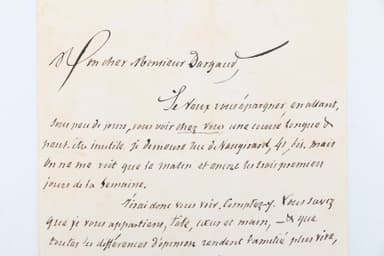 Mon cher Monsieur Dargaud,
Je veux vous épargner en allant,
sous peu de jours, vous voir chez vous une course longue &
peut-être inutile. Je demeure rue de Vaugirard, 41 bis. mais
on ne me voit que le matin et encore les trois premiers
jours de la semaine.
J'irai donc vous voir, comptez-y. Vous savez
que je vous appartiens, tête, cœur et main, — & que
toutes les différences d'opinion rendent l'amitié plus vive,